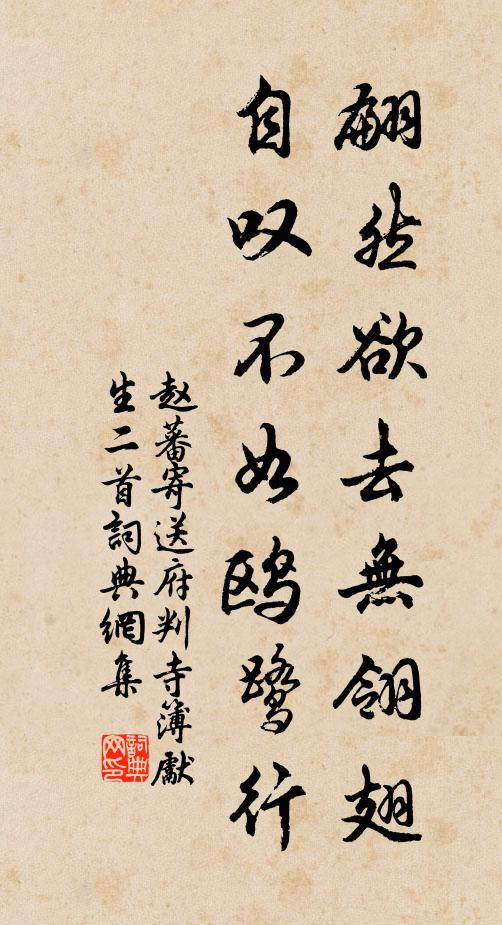 翩然欲去無翎翅
自叹不如鸥鹭行
赵蕃寄送府判寺簿獻
生二首詞典網集
詞典网印